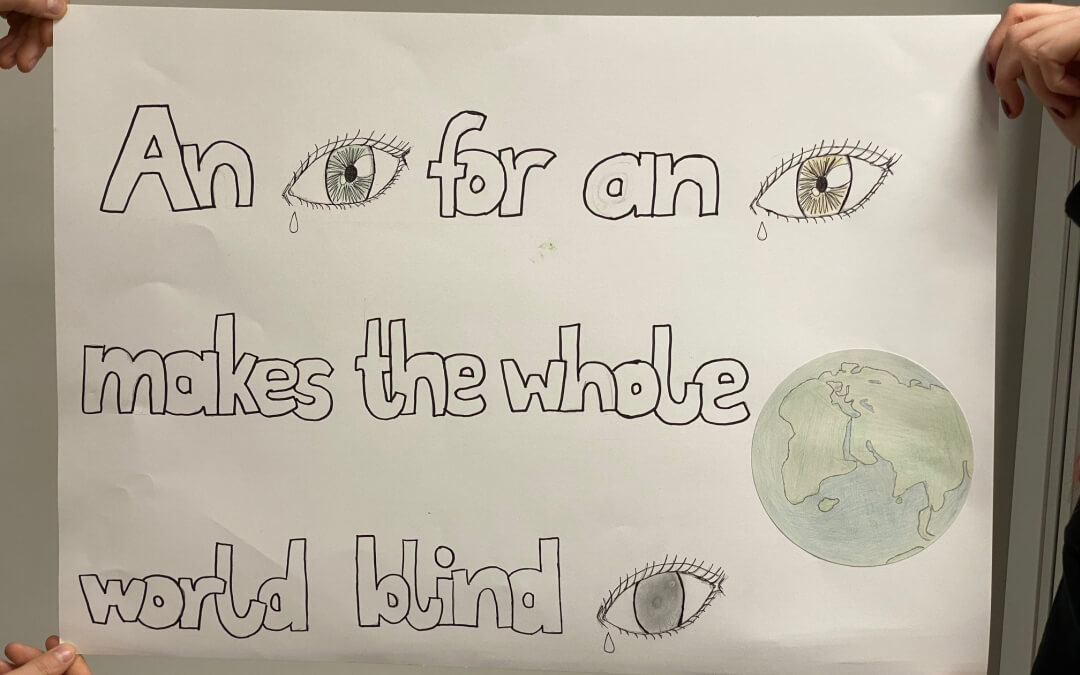 An for an
makes the whole
world blind